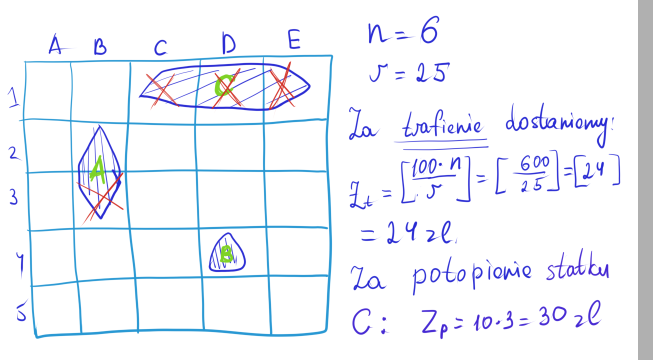 A B C D E
1
2
3
4
5
C
A
B
n = 6
r = 25
Za trafienie dostaniemy:
Z_t = [100·n / r] = [600 / 25] = [24]
= 24 zł.
Za potopienie statku
C: Z_p = 10·3 = 30 zł